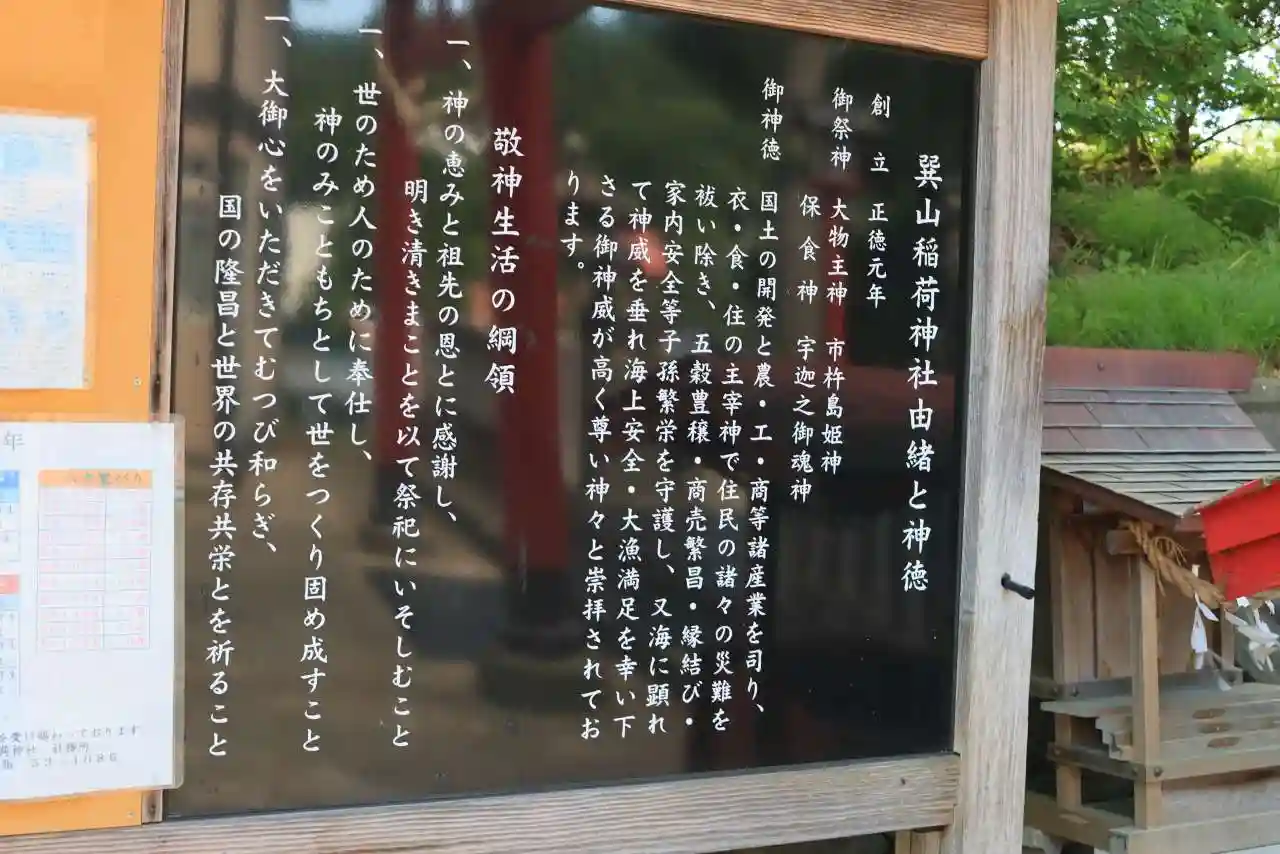 巽山稲荷神社由緒と神徳
創　立　正徳元年
御祭神　大物主神　市杵島姫神
保食神　宇迦之御魂神
御神徳　国土の開発と農・工・商等諸産業を司り、
衣・食・住の主宰神で住民の諸々の災難を
祓い除き、五穀豊穣・商売繁昌・縁結び・
家内安全等子孫繁栄を守護し、又海に顕れ
て神威を垂れ海上安全・大漁満足を幸い下
さる御神威が高く尊い神々と崇拝されてお
ります。
敬神生活の綱領
一、神の恵みと祖先の恩とに感謝し、
明き清きまことを以て祭祀にいそしむこと
一、世のため人のために奉仕し、
神のみこともちとして世をつくり固め成すこと
一、大御心をいただきてむつび和らぎ、
国の隆昌と世界の共存共栄とを祈ること
年